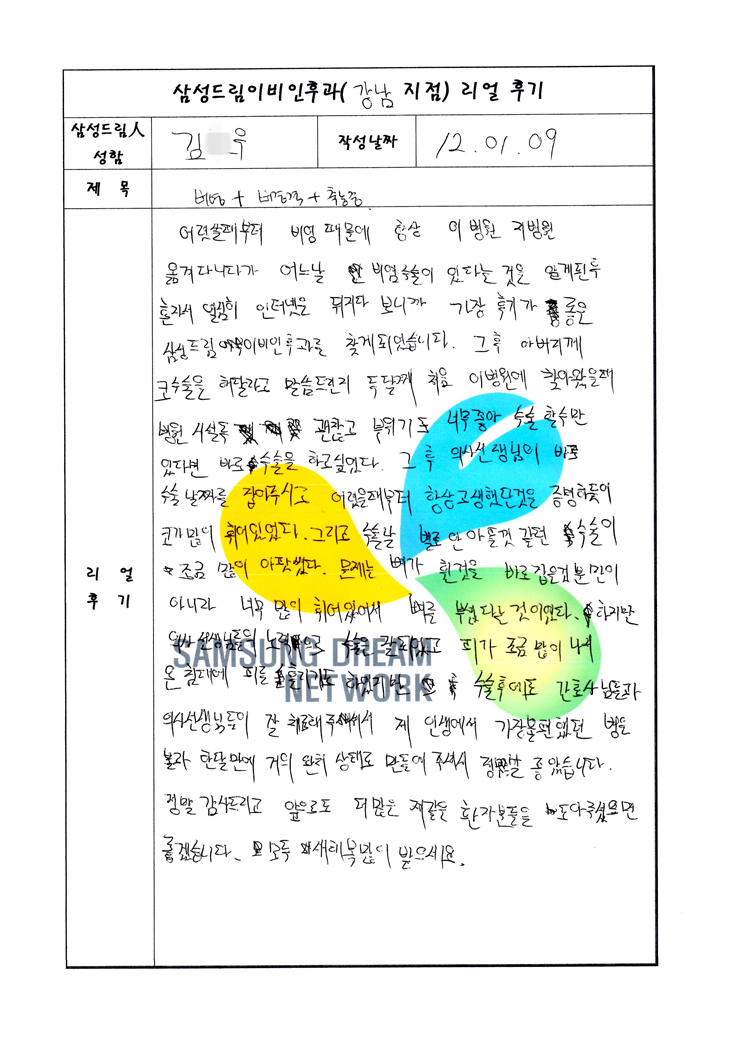 삼성드림이비인후과(강남 지점) 리얼 후기
삼성드림人 성함 김 우 작성날짜 12.01.09
제 목 비염 + 비중격 + 축농증
리 얼 후 기
어렷을때부터 비염 때문에 항상 이 병원 저병원
옮겨다니다가 어느날 비염수술이 있다는 것은 알게된후
혼자서 열심히 인터넷을 뒤지다 보니까 가장 후기가 좋은
삼성드림 이비인후과를 찾게되었습니다. 그후 아버지께
코수술을 해달라고 말씀드린지 두달째 처음 이병원에 찾아왔을때
병원 시설도 괜찮고 분위기도 너무좋아 수술 할수만
있다면 바로 수술을 하고싶었다. 그 후 의사선생님이 바로
수술 날짜를 잡아주시고 어렸을때부터 항상고생했단것을 증명하듯이
코가많이 휘어있었다. 그리고 수술날 별로 안 아플껏 같던 수술이
조금 많이 아팟썼다. 문제는 뼈가 휜것을 바로잡을껏 분만이
아니라 너무 많이 휘어있어서 뼈를 부쉈다는 것이였다. 하지만
의사선생님들의 수술은 잘되었고 피가 조금 많이 나서
온 침대에 피를 흘리기도 하였지만 수술후에도 간호사님들과
의사선생님들이 잘 치료해주셔서 제 인생에서 가장불편했던 병을
불과 한달만에 거의 완치 상태로 만들어 주셔서 정말 좋았습니다.
정말 감사드리고 앞으로도 더많은 저같은 환자분들을 도와주셨으면
좋겠습니다. 모두 새해복많이 받으세요.
SAMSUNG DREAM
NETWORK